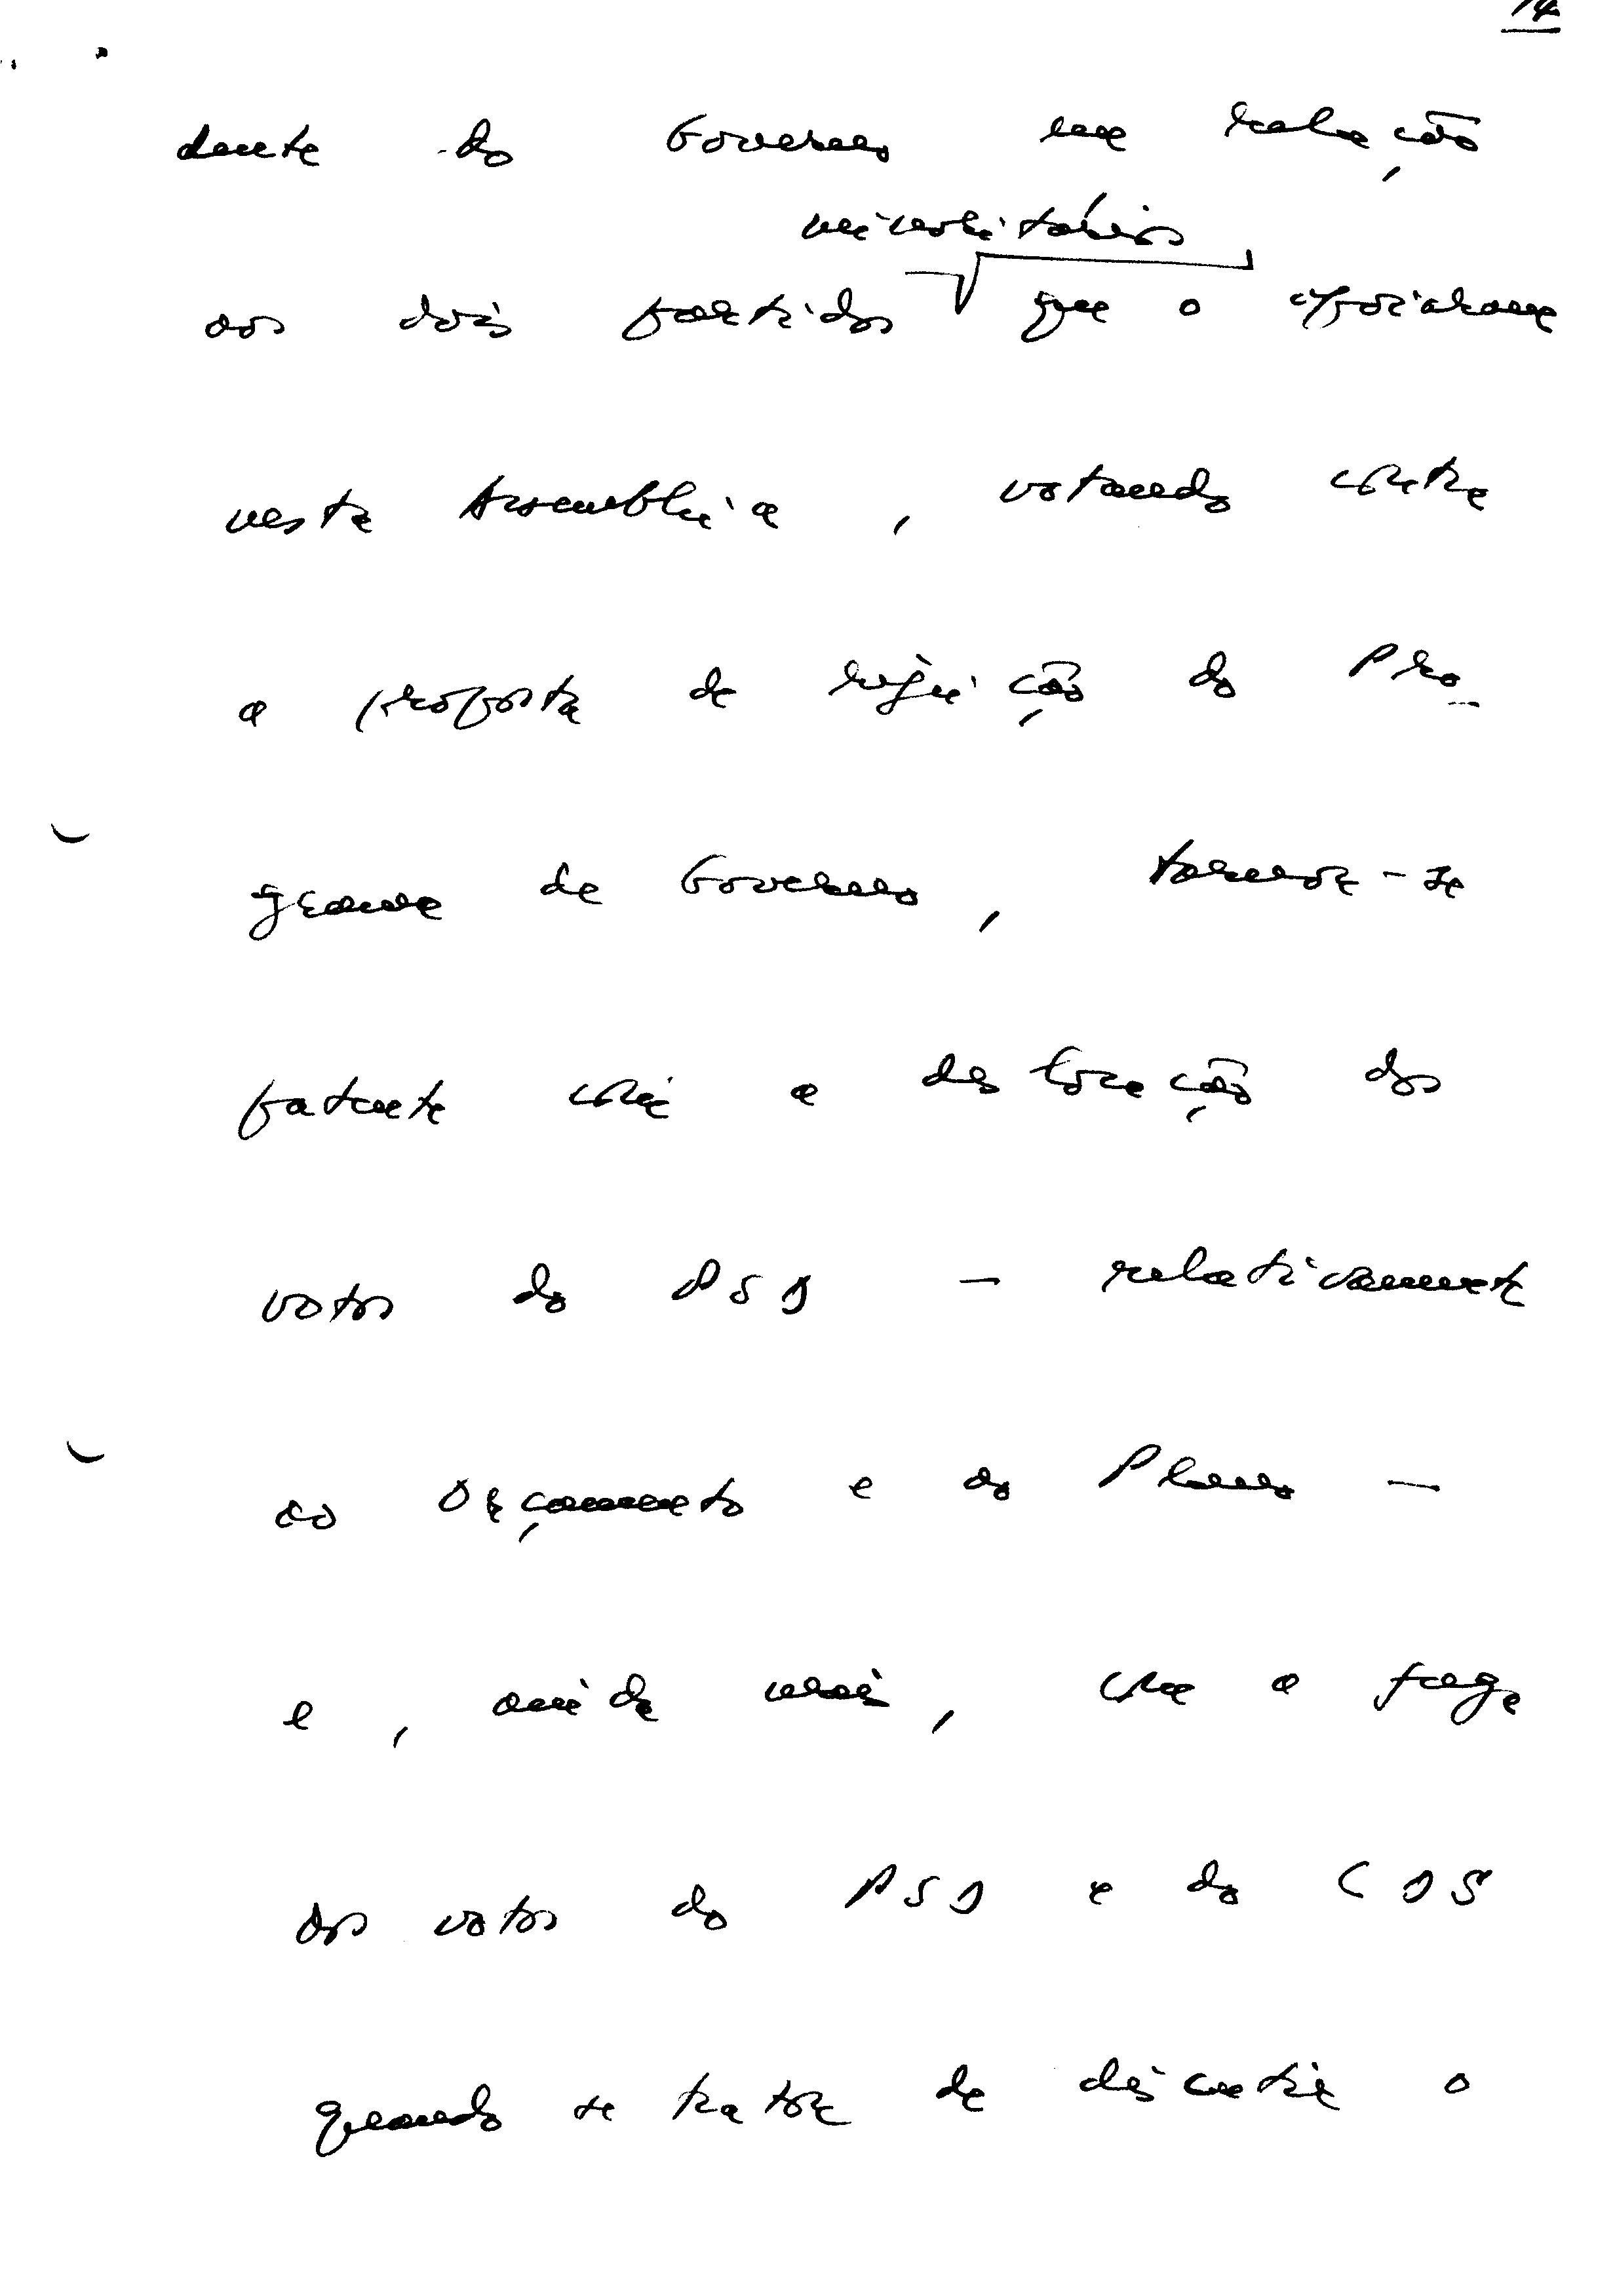 14
dente do Governo em relação
minoritários
aos dois partidos que o apoiaram
nesta Assembleia, votando contra
a proposta de rejeição do Pro-
grama de Governo, tornou-se
patente com a deslocação dos
votos do PSD — relativamente
ao Orçamento e ao Plano —
e, ainda mais, com a fuga
dos votos do PSD e do CDS
quando se tratou de discutir o